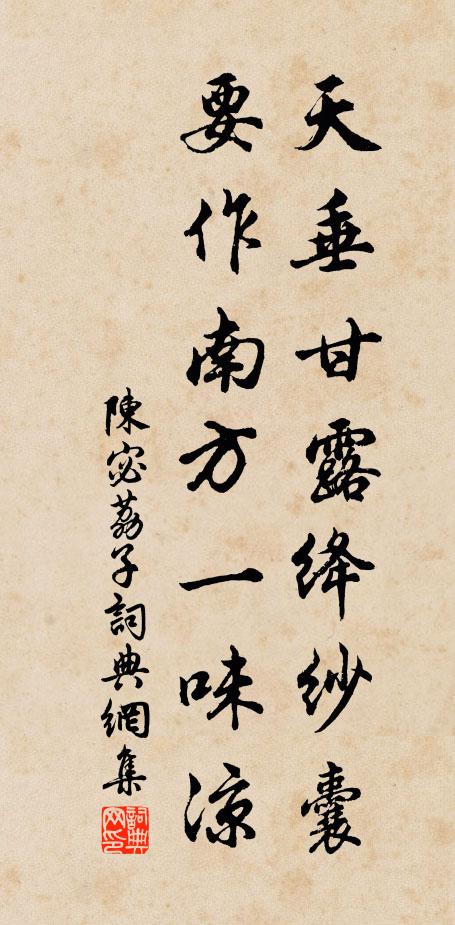 天垂甘露絳紗囊
要作南方一味涼
陳宓荔子詞典網集
詞典網印